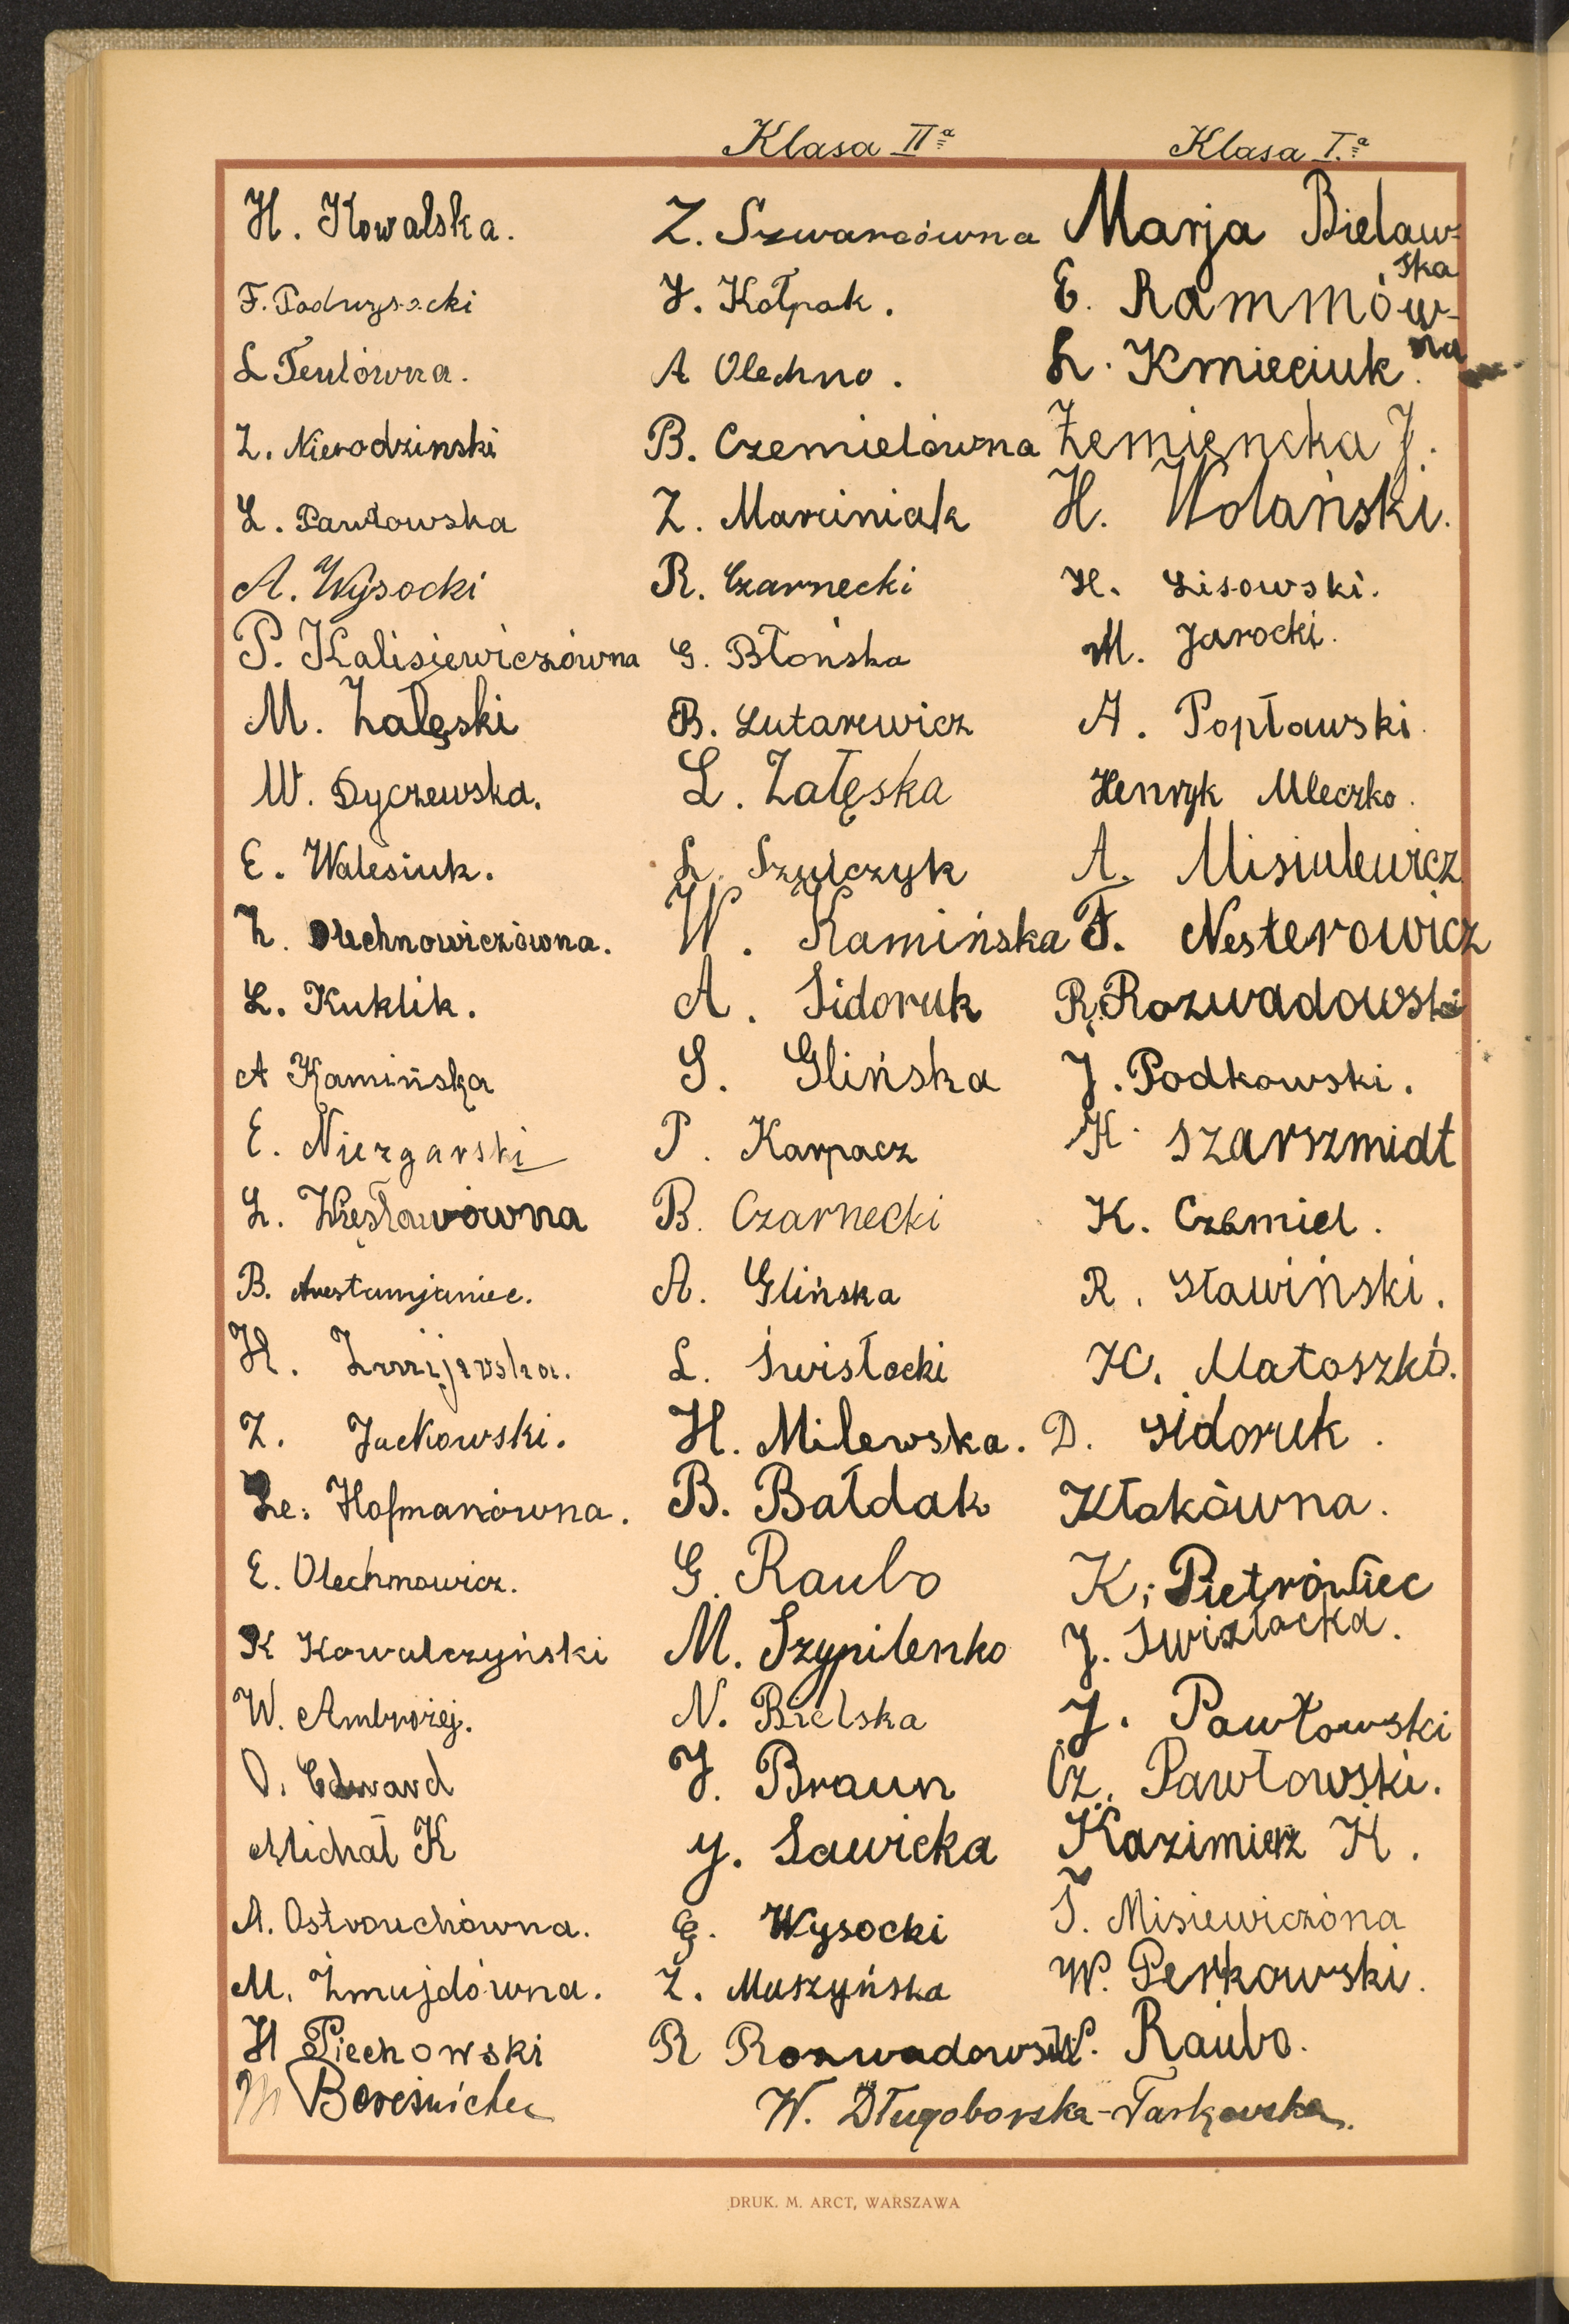 Klasa IIª
Klasa I.ª
H. Kowalska.
F. Podwys
L
Z. Nierodzinski
L. Pawłowska
A. Wysocki
P. Kalisiewiczówna
M. Załęski
W. Dyczewska.
E. Walesiuk.
Z. Olechnowiczówna.
L. Kuklik.
A Kamińska
E. Niezgarski
L.
B.
H. Żmijewska.
Z. Jackowski.
Le. Hofmanówna.
E. Olechnowicz.
K Kowalczyński
W. Ambrożej.
O. Edward
Michał K
A. Ostrouchówna.
M. Żmujdówna.
H Piechowski
Z. Szwarcówna
J. Kołpak.
A Olechno.
B. Czemielówna
Z. Marciniak
R. Czarnecki
G. Błońska
B. Lutarewicz
L. Załęska
L. Szulczyk
W. Kamińska
A. Sidoruk
S. Glińska
P. Karpacz
B. Czarnecki
A. Glińska
L. Świsłocki
H. Milewska.
B. Bałdak
G. Raubo
M. Szypilenko
N. Bielska
J. Braun
y. Sawicka
G. Wysocki
Z. Muszyńska
R Rozwadowski
W. Długoborska-Taskowska.
Marja Bielaw-
ska
E. Rammów-
na
L. Kmieciuk.
Zemiencka J.
H. Wolański.
H. Lisowski.
M. Jarocki.
A. Popławski.
Henryk Mleczko.
A. Misiulewicz
F. Nesterowicz
R. Rozwadowski
J. Podkowski.
K. Szarszmidt
K. Czemiel.
R. Sławiński.
K. Matoszkó.
D. Sidoruk.
Kłokówna.
K. Pietrówiec
J. Swizłocka.
J. Pawłowski
Cz. Pawłowski.
Kazimierz K.
T. Misiewiczóna
W. Perkowski.
W. Raubo.
DRUK. M. ARCT, WARSZAWA